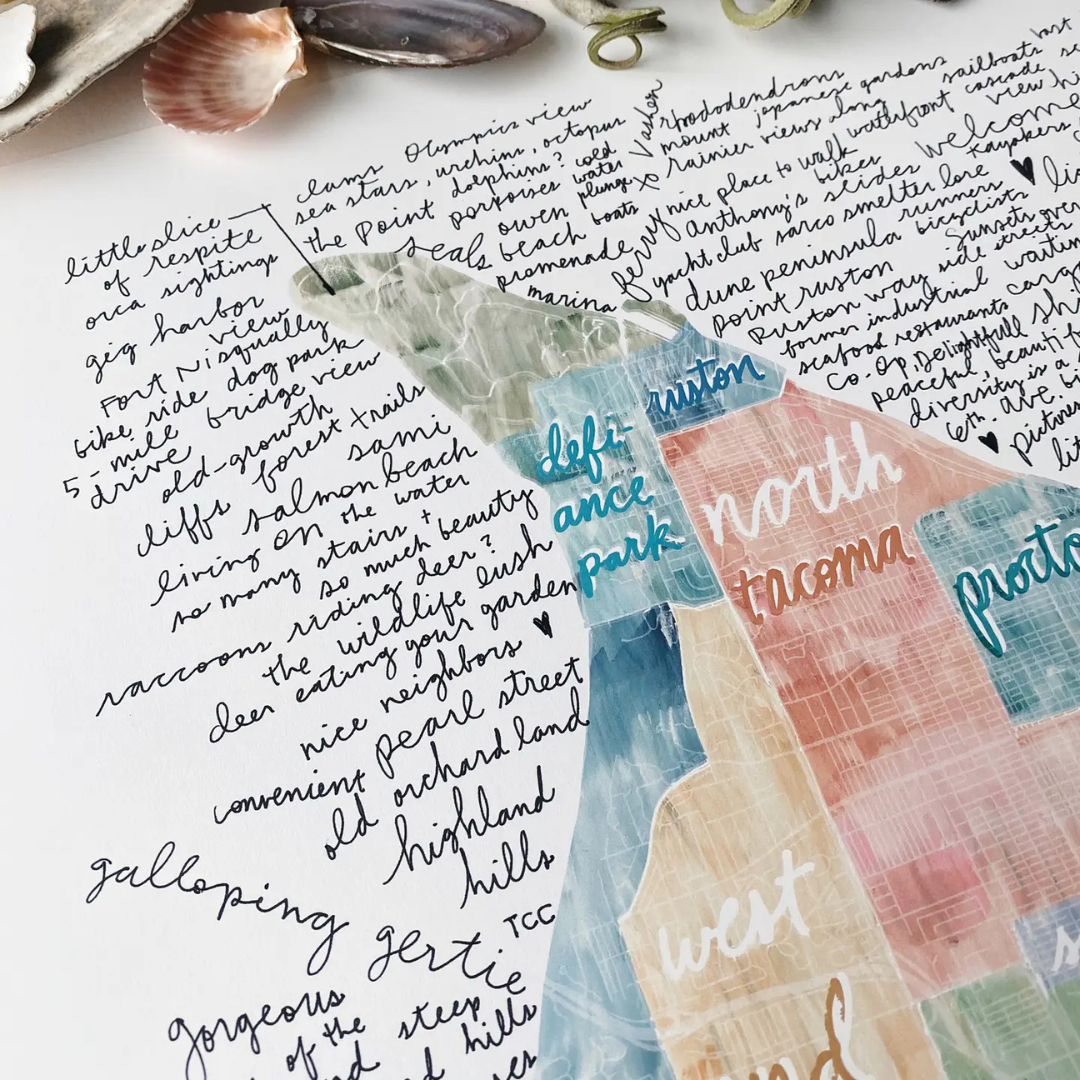 clams Olympics view
sea stars, urchins, octopus
the Point dolphins?
porpoises
cold
water
plunge
xo
boats
Vashon
owen
beach
promenade
seals
marina
ferry
rhododendrons
mount japanese gardens
rainier views along
sailboats
cascade
nice place to walk waterfront
view
Anthony's bikes welcome
Kayakers
yacht club sarco slides
smelter lore
dune peninsula runners
bicyclists
point ruston
sunsets over
Ruston way side streets
former industrial waiting
seafood restaurants cargo
Co-Op, Delightfull
peaceful, beauti
diversity is a
6th. ave.
little slice
of respite
orca sightings
gig harbor
view
Fort Nisqually
bike ride dog park
5-mile bridge view
drive
old-growth
cliffs forest trails
salmon beach
sami
living on the water
so many stairs +
so much beauty
raccoons riding deer?
the wildlife lush
deer eating your garden
nice neighbors
convenient pearl street
old orchard land
highland
hills
galloping
gertie
TCC
gorgeous
of the
steep
hills
defi-
ance
park
ruston
north
tacoma
west